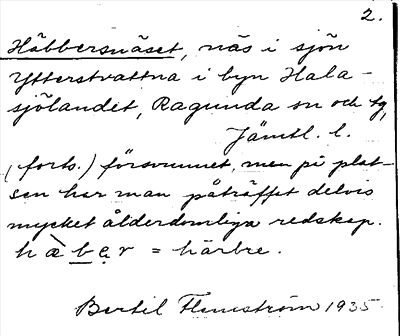 2.
Häbbersnäset, näs i sjön
Ytterstvattna i byn Hala-
sjölandet, Ragunda sn och tg,
Jämtl. l.
(forts.) försvunnet, men på plat-
sen har man påträffat delvis
mycket ålderdomliga redskap.
hàbęr = härbre.
Bertil Flemström 1935.